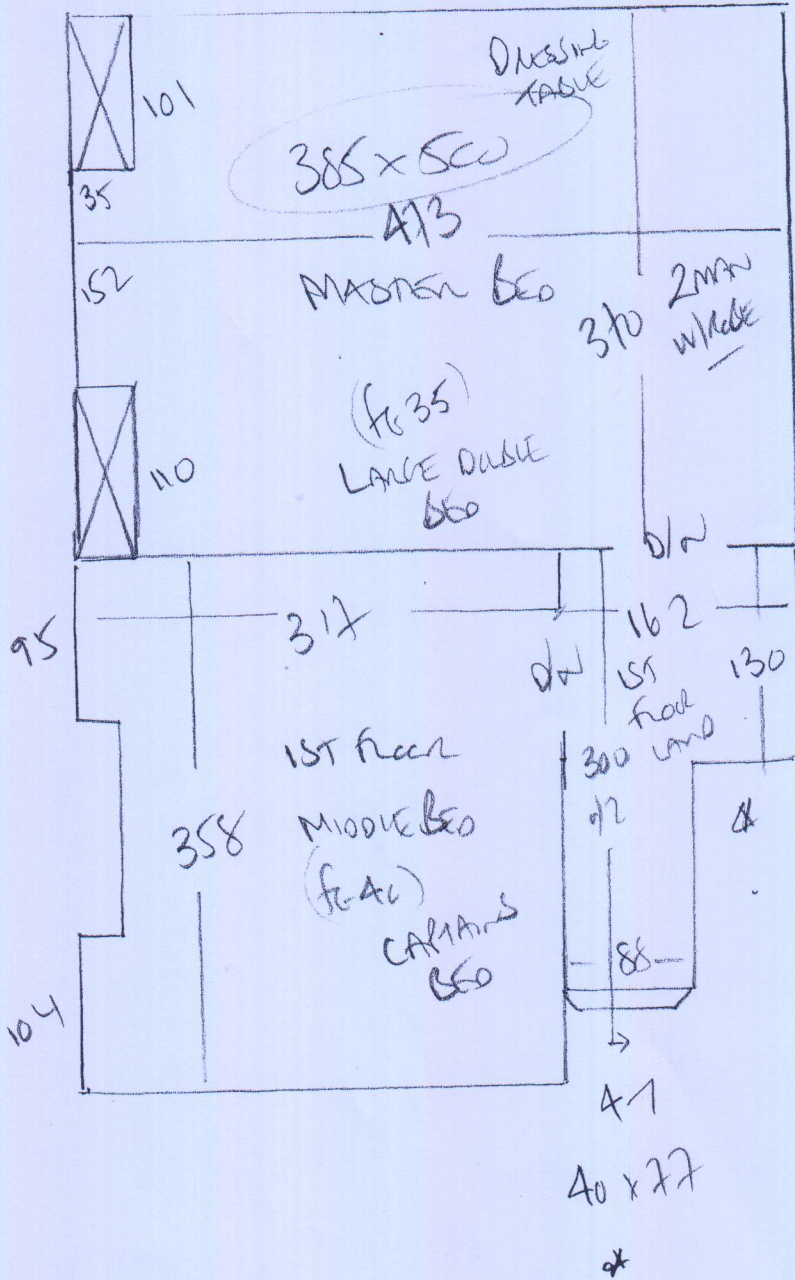 DRESSING
TABLE
101
385 x 500
35
473
152
MASTER BED
370
2 MAN
W/ROBE
(
LARGE DOUBLE
BED
110
D/W
317
162
95
D/W
1ST
FLOOR
LAND
130
1ST FLOOR
300
MIDDLE BED
358
CAPTAINS
BED
88
104
40 x 77